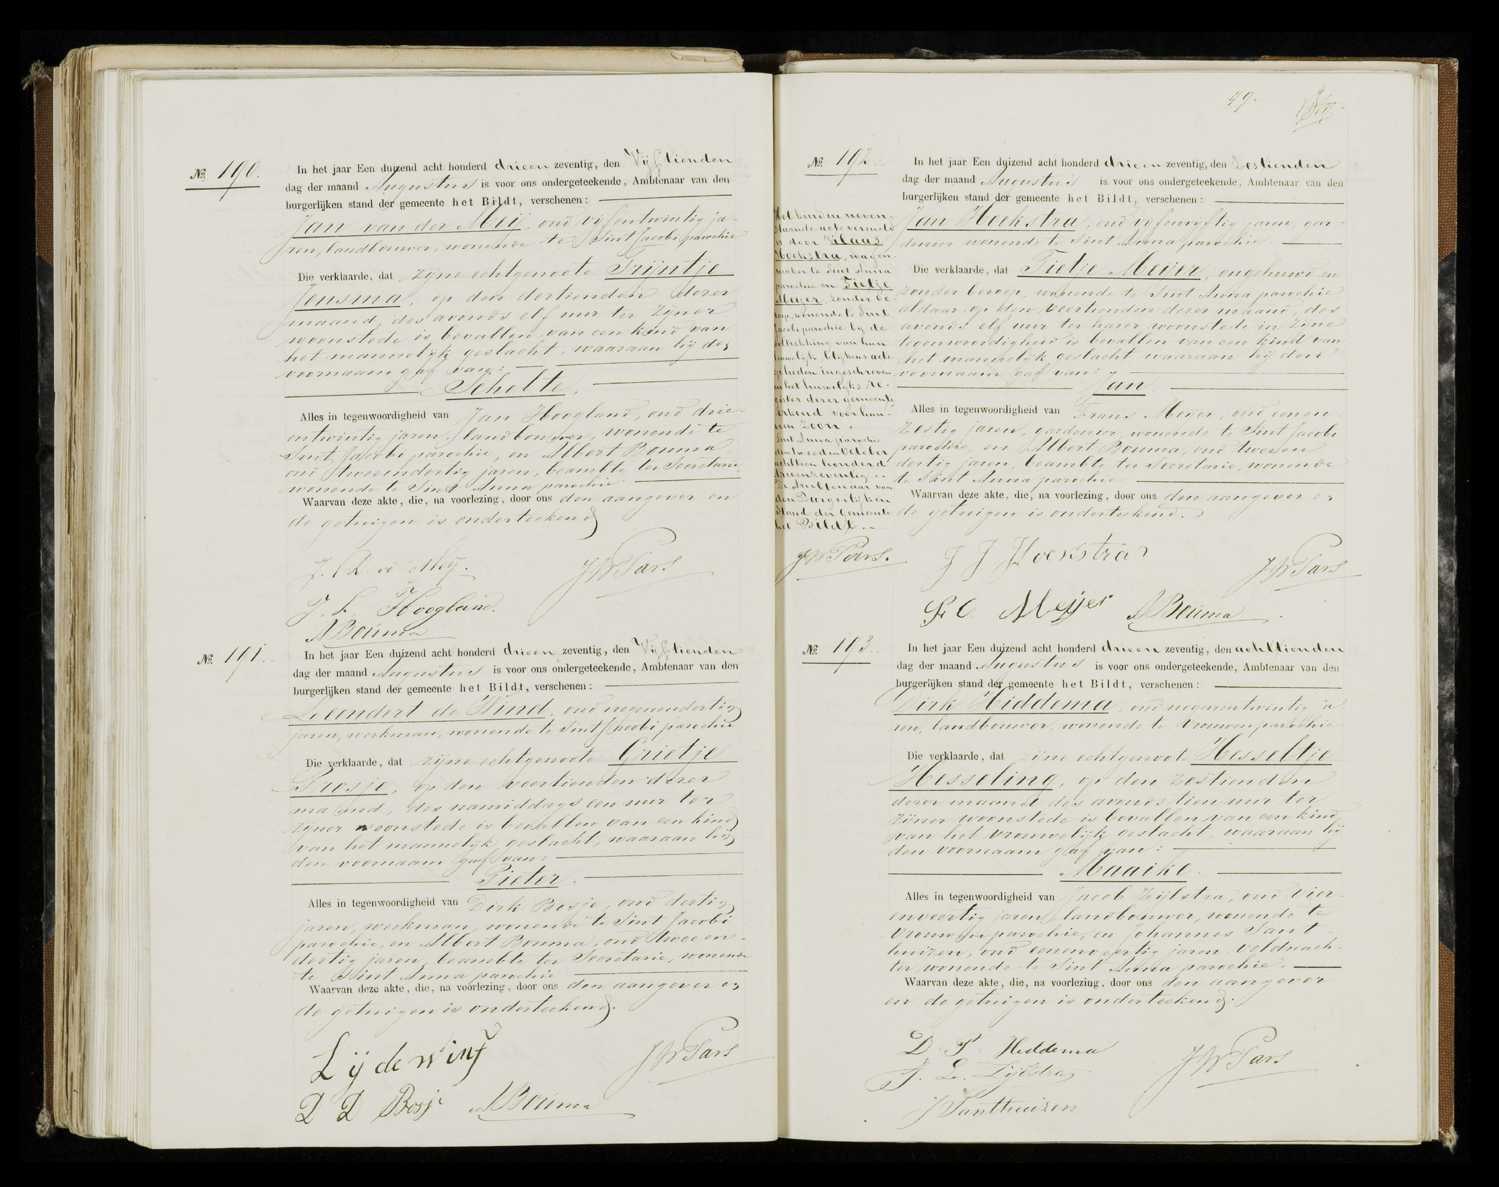 No. 190.
In het jaar Een duizend acht honderd drieen zeventig, den Vijftienden
dag der maand Augustus is voor ons ondergeteekende, Ambtenaar van den
burgerlijken stand der gemeente het Bildt, verschenen:
Jan van der Meij, oud vijfentwintig ja-
ren, landbouwer, wonende te Sint Jacobi parochie
Die verklaarde, dat zijne echtgenoote Trijntje
Jensma, op den dertienden dezer
maand, des avonds elf uur ter zijner
woonstede is bevallen van een kind van
het mannelijk geslacht, waaraan hij de
voornaam gaf van:
Schelte.
Alles in tegenwoordigheid van Jan Hoogland, oud drie-
entwintig jaren, landbouwer, wonende te
Sint Jacobi parochie, en Albert Bouma,
oud tweeendertig jaren, beambte ter Secretarie
wonende te Sint Anna parochie
Waarvan deze akte, die, na voorlezing, door ons den aangever en
de getuigen is onderteekend
J. S. Hoogland.
JW Pars
A Bouma
No. 191.
In het jaar Een duizend acht honderd drieen zeventig, den Vijftienden
dag der maand Augustus is voor ons ondergeteekende, Ambtenaar van den
burgerlijken stand der gemeente het Bildt, verschenen:
Leendert de Wind, oud negenendertig
jaren, werkman, wonende te Sint Jacobi parochie
Die verklaarde, dat zijne echtgenoote Grietje
op den veertienden dezer
maand, des namiddags een uur ter
zijner woonstede is bevallen van een kind
van het mannelijk geslacht, waaraan hij
den voornaam gaf van:
Pieter.
Alles in tegenwoordigheid van Dirk Bosje, oud dertig
jaren, werkman, wonende te Sint Jacobi
parochie, en Albert Bouma, oud tweeen-
dertig jaren, beambte ter Secretarie, wonende
te Sint Anna parochie
Waarvan deze akte, die, na voorlezing, door ons den aangever en
de getuigen is onderteekend.
L ij de Wind
JW Pars
D D Bosje A Bouma
49.
No. 192.
In het jaar Een duizend acht honderd drieen zeventig, den zestienden
dag der maand Augustus is voor ons ondergeteekende, Ambtenaar van den
burgerlijken stand der gemeente het Bildt, verschenen:
Jan Hoekstra, oud jaren, gar-
denier wonende te Sint Anna parochie
Die verklaarde, dat Tietje Meijer, ongehuwd en
zonder beroep, wonende te Sint Anna parochie
aldaar op den veertienden dezer maand, des
avonds elf uur ter harer woonstede in zijne
tegenwoordigheid is bevallen van een kind van
het mannelijk geslacht waaraan hij den
voornaam gaf van:
Jan
Alles in tegenwoordigheid van Frans Meijer, oud eenen
zestig jaren, gardenier, wonende te Sint Jacobi
parochie, en Albert Bouma, oud tweeen
dertig jaren, beambte ter Secretarie, wonende
te Sint Anna parochie
Waarvan deze akte, die, na voorlezing, door ons den aangever en
de getuigen is onderteekend.
Het kind in neven-
staande acte vermeld
is door Klaas
Hoekstra, wagen-
maker te Sint Anna
parochie en Tietje
Meijer, zonder be-
roep, wonende te Sint
Jacobi parochie bij de
voltrekking van hun
huwelijk blijkens acte
op heden ingeschreven
in het huwelijks re-
gister dezer gemeente
erkend voor hun-
nen zoon.
Sint Anna parochie
den tweeden October
achttien honderd
drieenzeventig.
De Ambtenaar van
den Burgerlijken
Stand der Gemeente
het Bildt.
JW Pars.
J J Hoekstra
JW Pars
F. C. Meijer A Bouma
No. 193.
In het jaar Een duizend acht honderd drieen zeventig, den achttienden
dag der maand Augustus is voor ons ondergeteekende, Ambtenaar van den
burgerlijken stand der gemeente het Bildt, verschenen:
Dirk Hiddema, oud negenentwintig ja
ren, landbouwer, wonende te Vrouwen parochie
Die verklaarde, dat zijne echtgenoot Hesseltje
Hesseling, op den zestienden
dezer maand des avonds tien uur ter
zijner woonstede is bevallen van een kind
van het vrouwelijk geslacht, waaraan hij
den voornaam gaf van:
Maaike.
Alles in tegenwoordigheid van Jacob Zijlstra, oud vier
enveertig jaren, landbouwer, wonende te
Vrouwen parochie, en Johannes Sant
huizen, oud jaren veldwach-
ter, wonende te Sint Anna parochie.
Waarvan deze akte, die, na voorlezing, door ons den aangever
en de getuigen is onderteekend.
D. P. Hiddema
J. L. Zijlstra
JW Pars
J Santhuizen